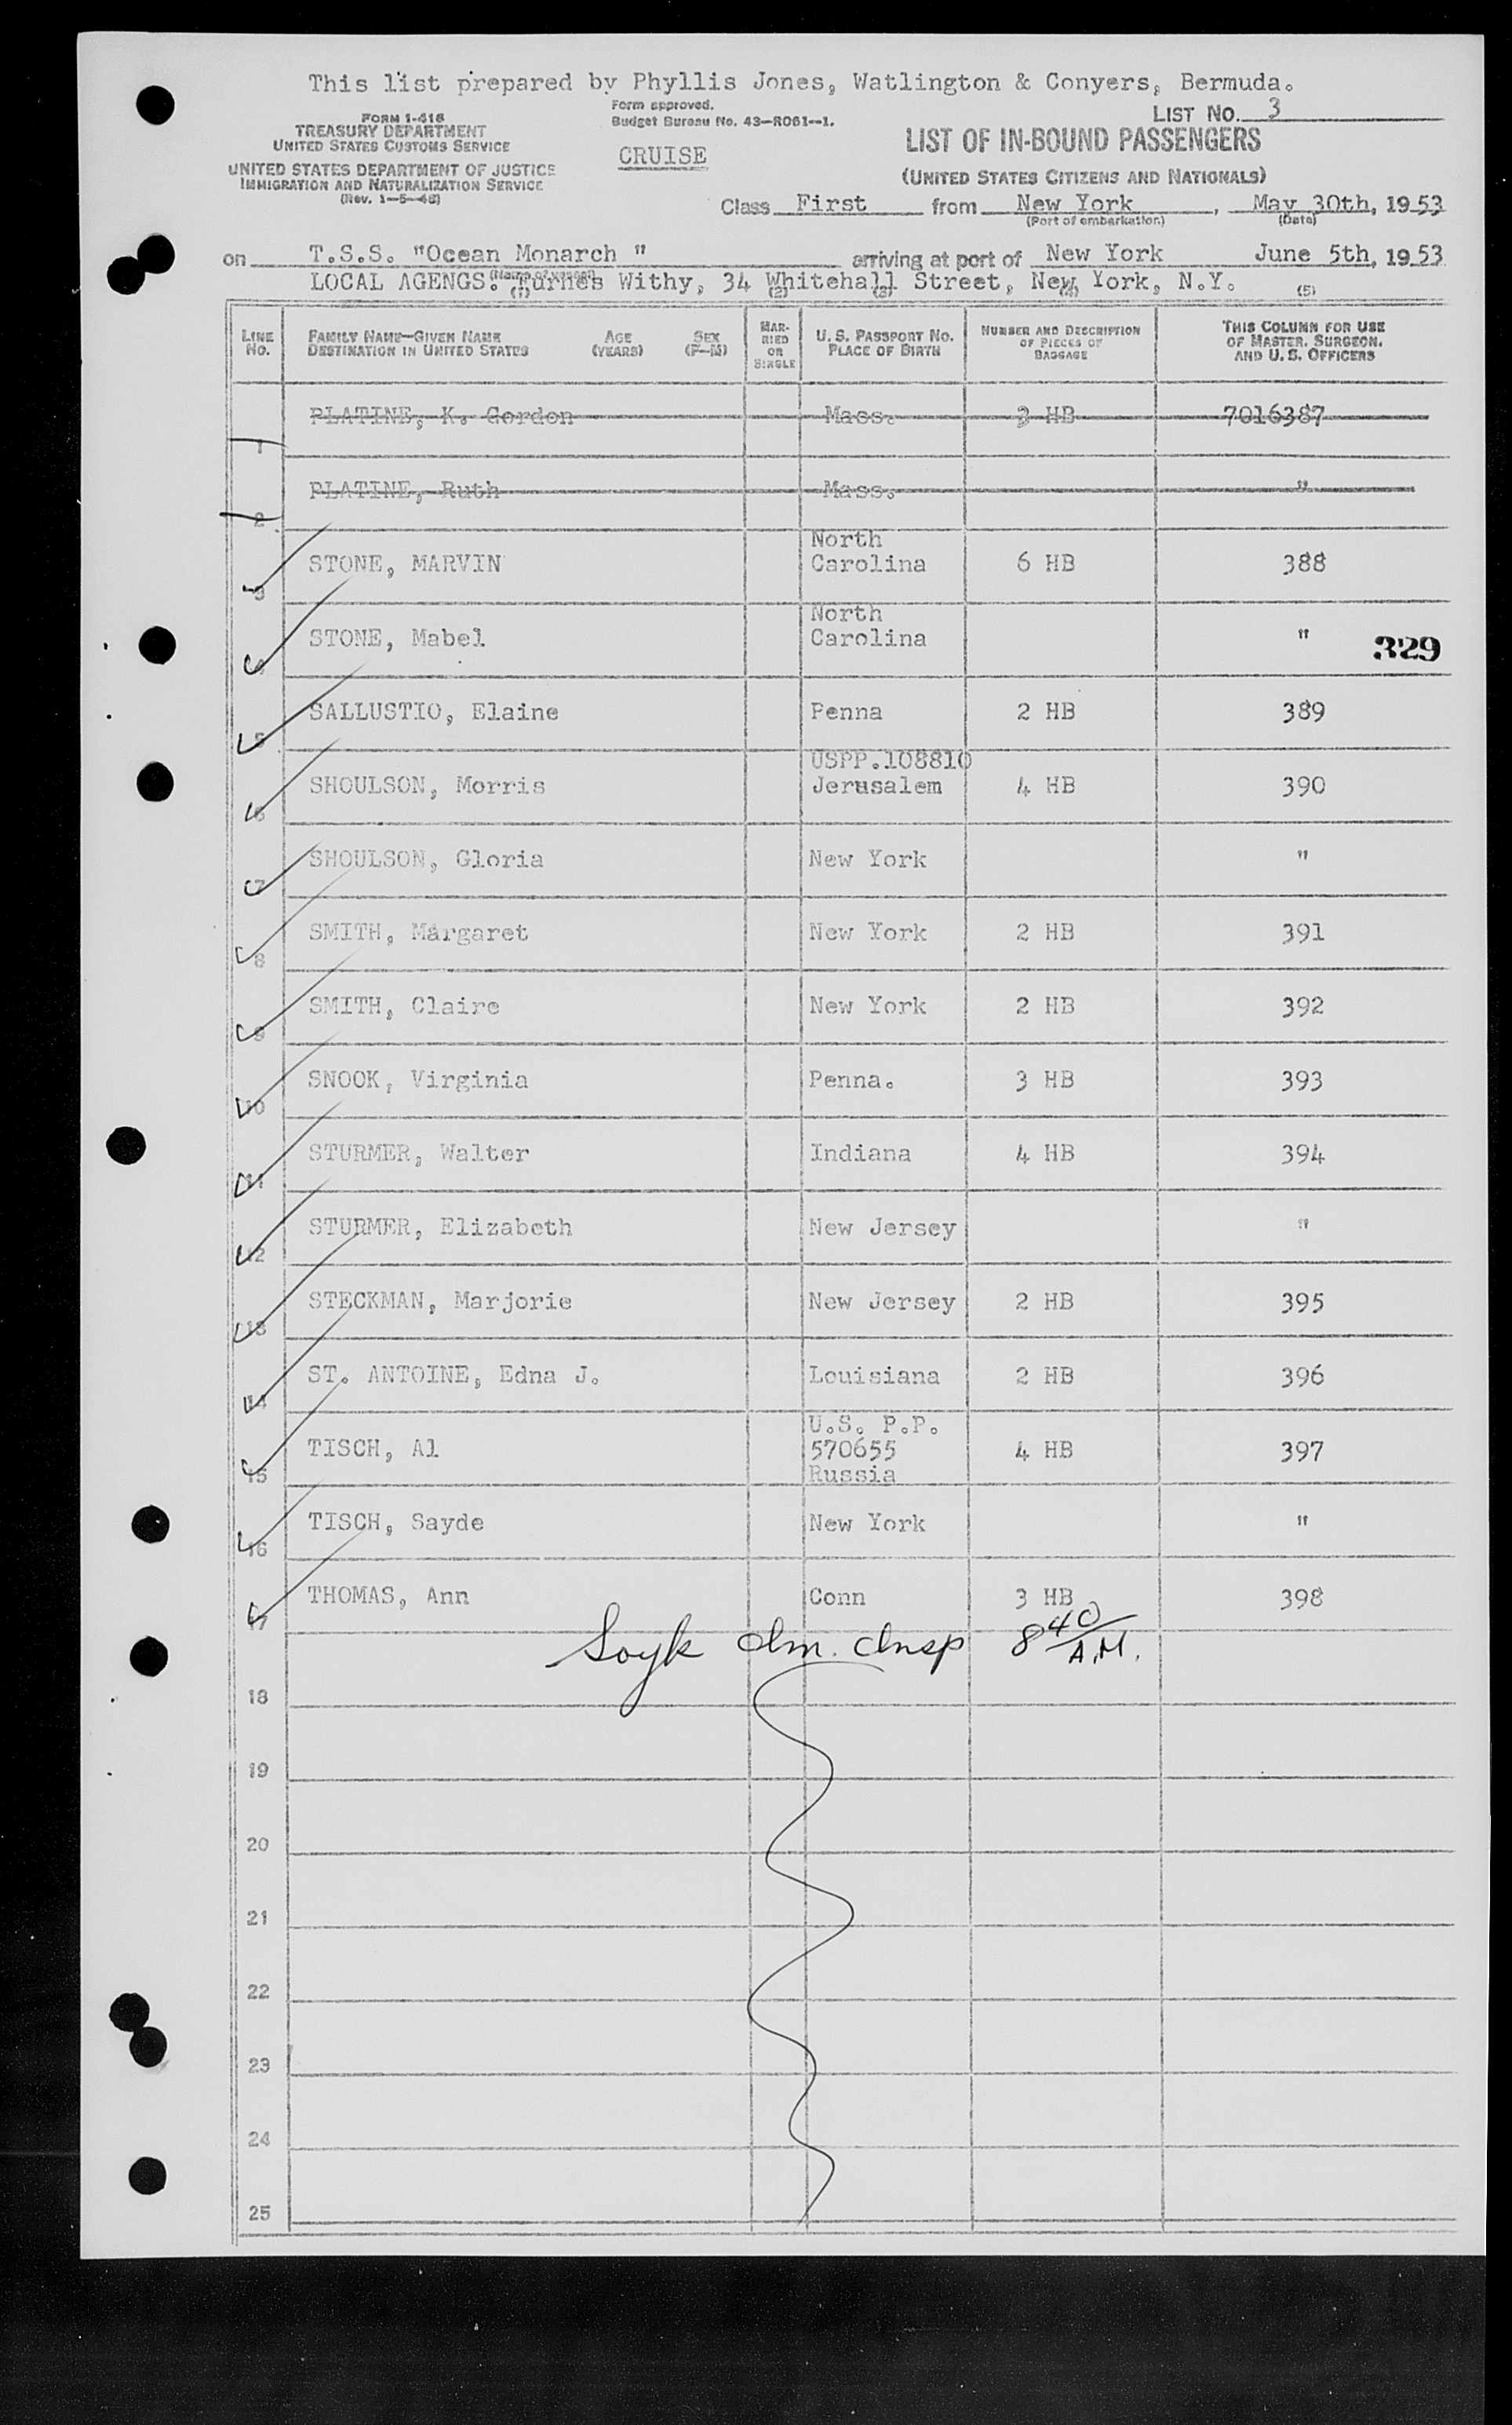 This list prepared by Phyllis Jones, Watlington & Conyers, Bermuda.
Form approved.
Budget Bureau No. 43-R061-1.
LIST NO. 3
FORM I-416
TREASURY DEPARTMENT
UNITED STATES CUSTOMS SERVICE
UNITED STATES DEPARTMENT OF JUSTICE
IMMIGRATION AND NATURALIZATION SERVICE
(Rev. 1-5-48)
CRUISE
LIST OF IN-BOUND PASSENGERS
(UNITED STATES CITIZENS AND NATIONALS)
Class First from New York, May 30th, 1953
(Port of embarkation) (Date)
on T.S.S. "Ocean Monarch " arriving at port of New York June 5th, 1953
(Name of vessel)
LOCAL AGENGS. Furness Withy, 34 Whitehall Street, New York, N.Y.
(1) (2) (3) (4) (5)
LINE NO. FAMILY NAME—GIVEN NAME DESTINATION IN UNITED STATES AGE (YEARS) SEX (F-M) MARRIED OR SINGLE U. S. PASSPORT NO. PLACE OF BIRTH NUMBER AND DESCRIPTION OF PIECES OF BAGGAGE THIS COLUMN FOR USE OF MASTER, SURGEON, AND U. S. OFFICERS
1 PLATINE, K. Gordon Mass. HB 7016387
2 PLATINE, Ruth Mass. "
3 STONE, MARVIN North Carolina 6 HB 388
4 STONE, Mabel North Carolina "
329
5 SALLUSTIO, Elaine Penna 2 HB 389
6 SHOULSON, Morris USPP.108810 Jerusalem 4 HB 390
7 SHOULSON, Gloria New York "
8 SMITH, Margaret New York 2 HB 391
9 SMITH, Claire New York 2 HB 392
10 SNOOK, Virginia Penna. 3 HB 393
11 STURMER, Walter Indiana 4 HB 394
12 STURMER, Elizabeth New Jersey "
13 STECKMAN, Marjorie New Jersey 2 HB 395
14 ST. ANTOINE, Edna J. Louisiana 2 HB 396
15 TISCH, Al U.S. P.P. 570655 Russia 4 HB 397
16 TISCH, Sayde New York "
17 THOMAS, Ann Conn 3 HB 398
Soyk Im. Insp 8 40 A.M.
18
19
20
21
22
23
24
25